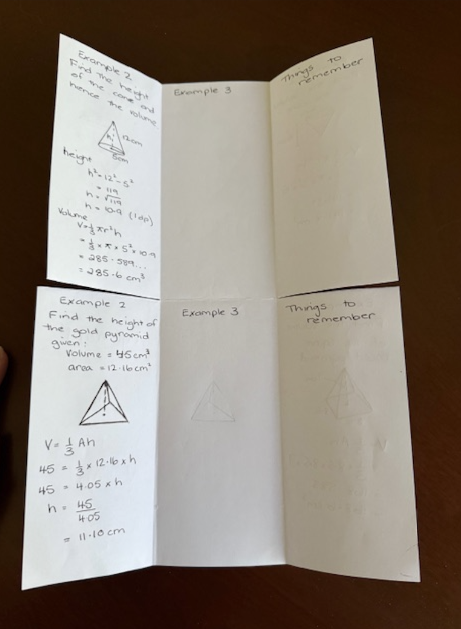 Example 2
Find the height
of the cone and
hence the volume
12cm
h
5cm
height
h² = 12² - 5²
= 119
h = √119
h = 10.9 (1dp)
Volume
V = 1/3 πr²h
= 1/3 × π × 5² × 10.9
= 285.589...
= 285.6 cm³
Example 3
Things to
remember
Example 2
Find the height of
the gold pyramid
given:
Volume = 45cm³
area = 12.16cm²
V = 1/3 Ah
45 = 1/3 × 12.16 × h
45 = 4.05 × h
h = 45/4.05
= 11.10 cm
Example 3
Things to
remember